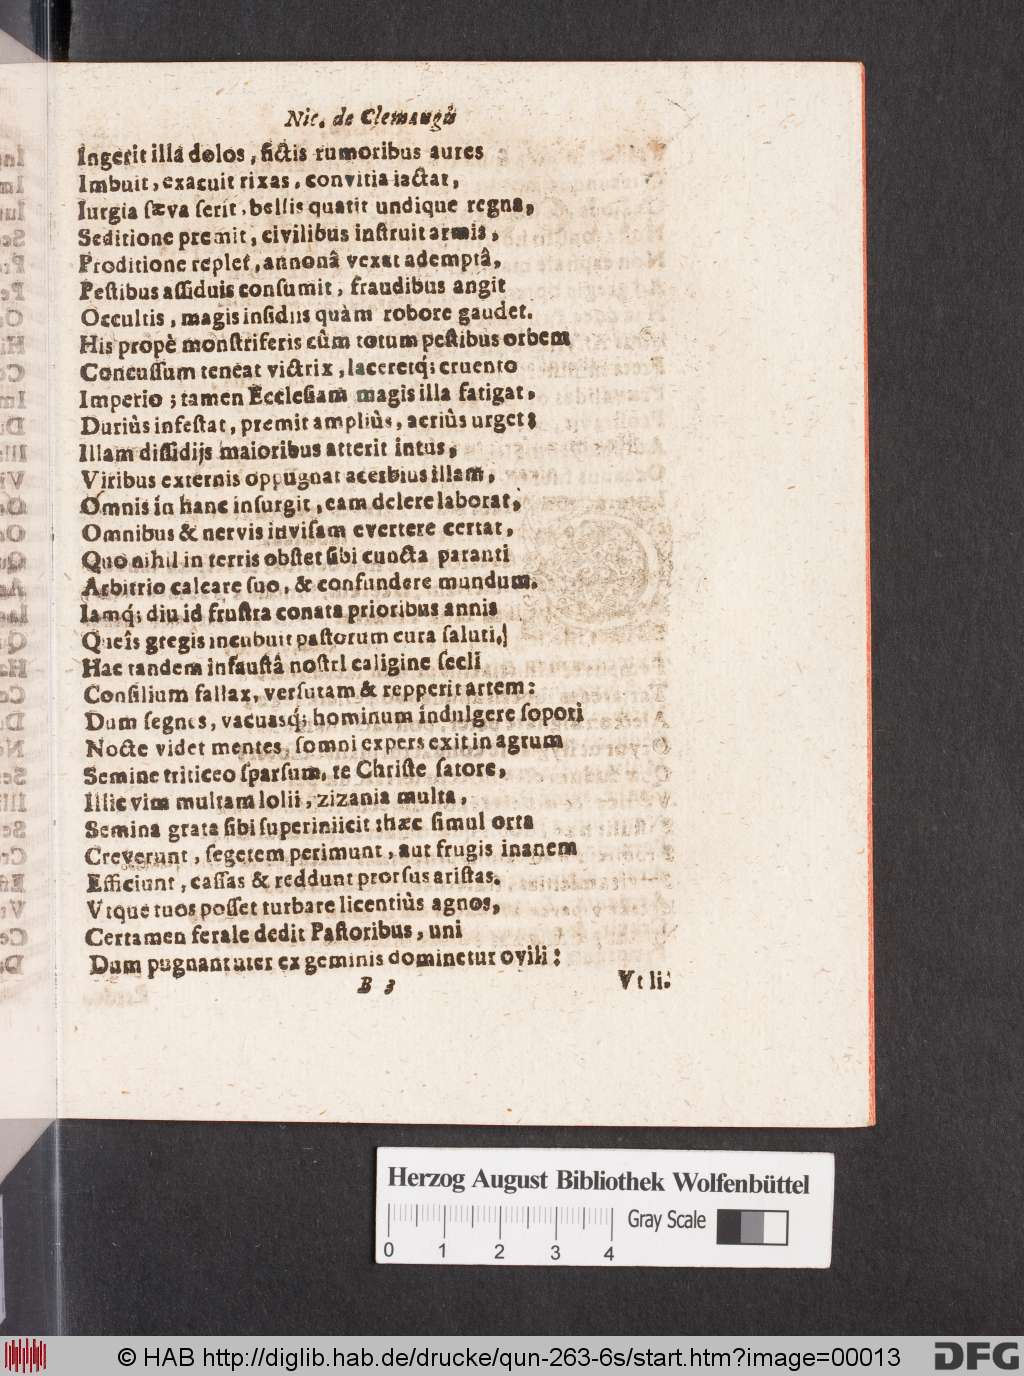 Nic. de Clemangis
Ingerit illa dolos, fictis rumoribus aures
Imbuit, exacuit rixas, convitia iactat,
Iurgia sæva serit, bellis quatit undique regna,
Seditione premit, civilibus instruit armis,
Proditione replet, annonâ vexat ademptâ,
Pestibus assiduis consumit, fraudibus angit
Occultis, magis insidiis quàm robore gaudet.
His propè monstriferis cûm totum pestibus orbem
Concussum teneat victrix, laceretq; cruento
Imperio; tamen Ecclesiam magis illa fatigat,
Duriùs infestat, premit ampliùs, acriùs urget;
Illam dissidijs maioribus atterit intus,
Viribus externis oppugnat acerbius illam,
Omnis in hanc insurgit, eam delere laborat,
Omnibus & nervis invisam evertere certat,
Quo nihil in terris obstet sibi cuncta paranti
Arbitrio calcare suo, & confundere mundum.
Iamq; diu id frustra conata prioribus annis
Queîs gregis incubuit pastorum cura saluti,
Hac tandem infaustâ nostri caligine secli
Consilium fallax, versutam & repperit artem:
Dum segnes, vacuasq; hominum indulgere sopori
Nocte videt mentes, somni expers exit in agrum
Semine triticeo sparsum, te Christe satore,
Illic vim multam lolii, zizania multa,
Semina grata sibi superiniicit: hæc simul orta
Creverunt, segetem perimunt, aut frugis inanem
Efficiunt, cassas & reddunt prorsus aristas.
Vtque tuos posset turbare licentiùs agnos,
Certamen ferale dedit Pastoribus, uni
Dum pugnant uter ex geminis dominetur ovili:
B 3 Vt li-
Herzog August Bibliothek Wolfenbüttel
Gray Scale
0 1 2 3 4
© HAB http://diglib.hab.de/drucke/qun-263-6s/start.htm?image=00013
DFG